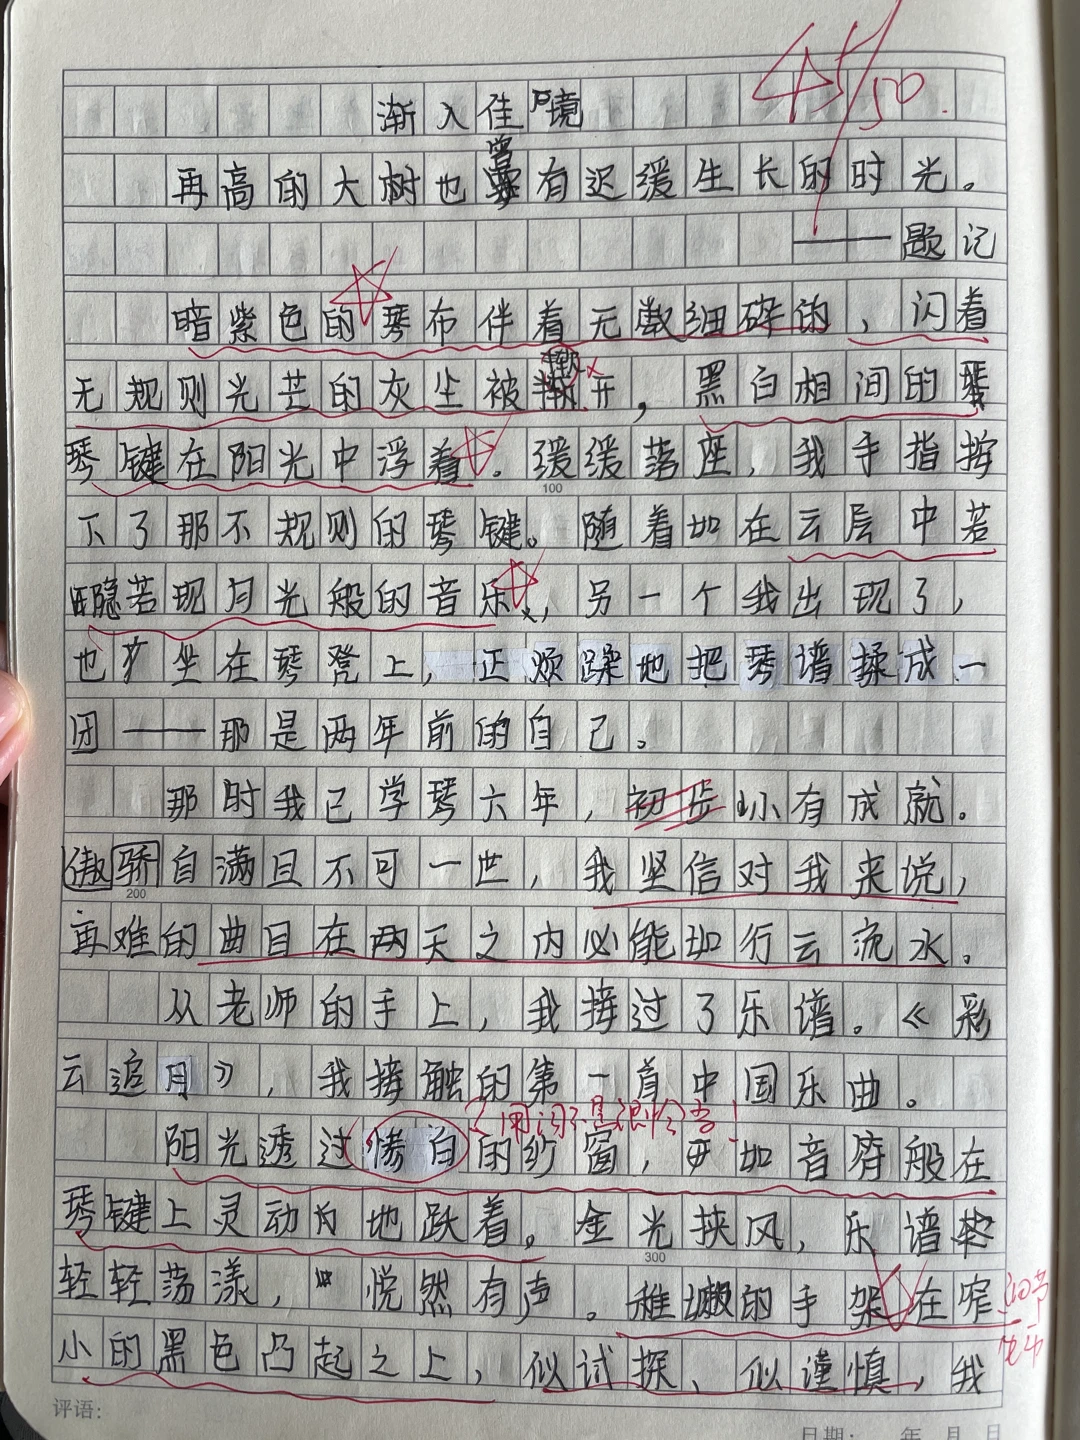 45/50.
渐入佳境
再高的大树也曾有迟缓生长的时光。
——题记
暗紫色的琴布伴着无数细碎的，闪着
无规则光芒的灰尘被掀开，黑白相间的
琴键在阳光中浮着。缓缓落座，我手指按
100
下了那不规则的琴键。随着如在云层中若
隐若现月光般的音乐，另一个我出现了，
也坐在琴凳上，正烦躁地把琴谱揉成一
团——那是两年前的自己。
那时我已学琴六年，初步小有成就。
傲骄自满且不可一世，我坚信对我来说，
200
再难的曲目在两天之内必能如行云流水。
从老师的手上，我接过了乐谱。《彩
云追月》，我接触的第一首中国乐曲。
用词不是很恰当！
阳光透过的纱窗，如音符般在
琴键上灵动地跃着。金光挟风，乐谱
300
轻轻荡漾，悦然有声。稚嫩的手架在窄
小的黑色凸起之上，似试探、似谨慎，我
评语：
日期： 年 月 日